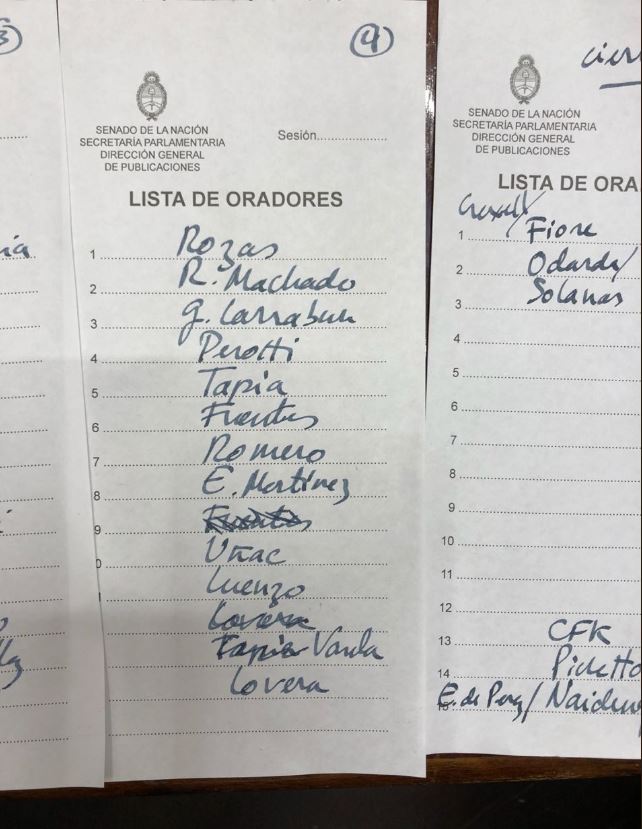 3
ía
4
SENADO DE LA NACIÓN
SECRETARÍA PARLAMENTARIA
DIRECCIÓN GENERAL
DE PUBLICACIONES
Sesión
LISTA DE ORADORES
1 Rozas
2 R. Machado
3 G. Larraburu
4 Perotti
5 Tapia
6 Fuentes
7 Romero
8 E. Martinez
9 Fuentes
0 Uñac
1 Luenzo
Lovera
Tapia Varela
Lovera
cierr
SENADO DE LA NACIÓN
SECRETARÍA PARLAMENTARIA
DIRECCIÓN GENERAL
DE PUBLICACIONES
LISTA DE ORA
1 Crexell/ Fiore
2 Odarda/
3 Solanas
4
5
6
7
8
9
10
11
12
13 CFK
14 Pichetto
15 E. de Perez/ Naiden